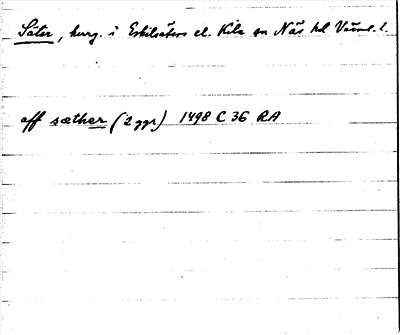 Säter, herg. i Eskilsäters el. Kila sn Näs hd Värml. l.
aff sæther (2 ggr) 1498 C 36 RA